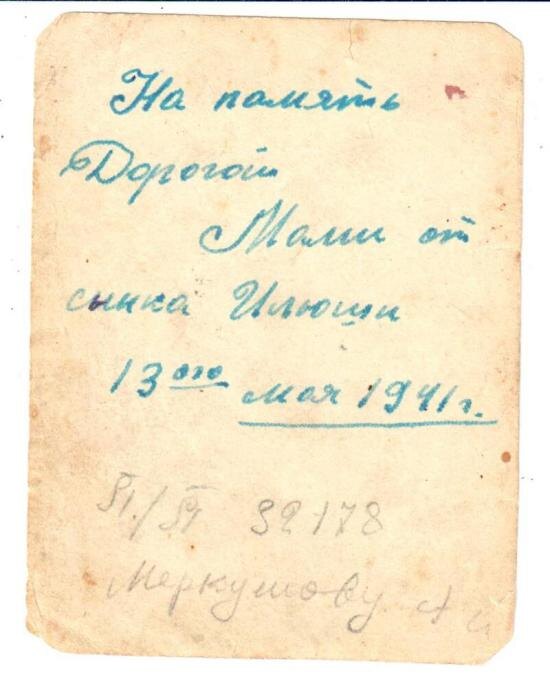 На память
Дорогой
Мами от
сынка Илюши
13ого мая 1941г.
32178
Меркушову